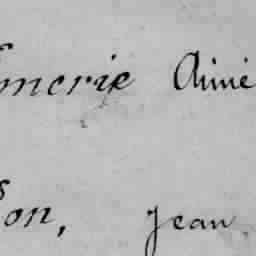 merie Aimé
son, Jean